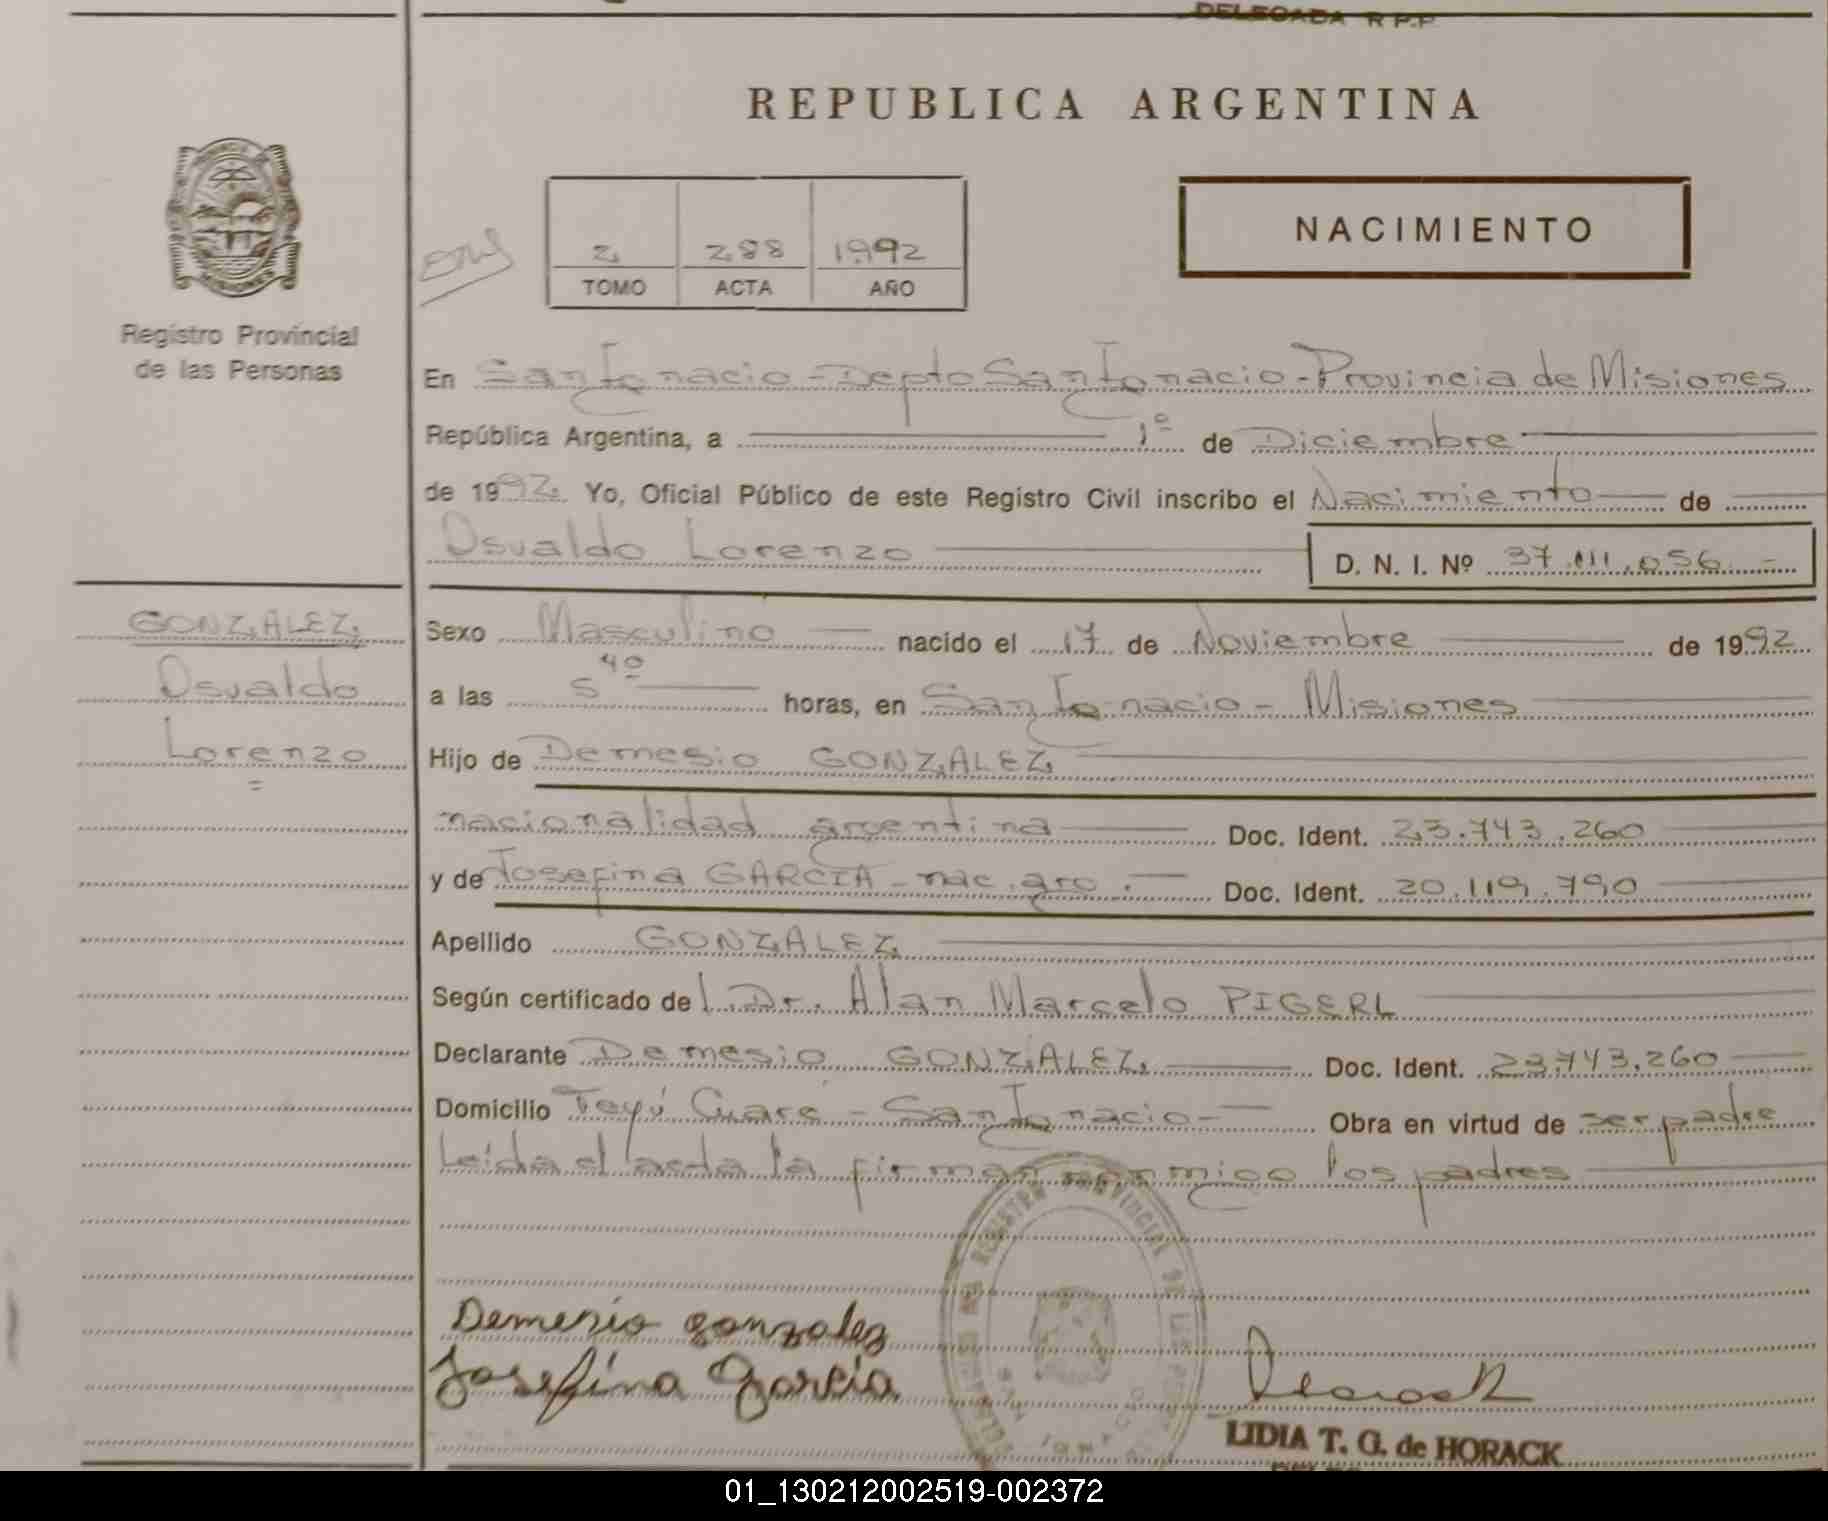 DELEGADA R.P.P.
REPUBLICA ARGENTINA
NACIMIENTO
2 288 1992
TOMO ACTA AÑO
Registro Provincial
de las Personas
En San Ignacio - Depto San Ignacio - Provincia de Misiones
República Argentina, a 1º de Diciembre
de 1992. Yo, Oficial Público de este Registro Civil inscribo el Nacimiento de
Osvaldo Lorenzo
D. N. I. Nº 37.111.056.-
GONZALEZ
Osvaldo
Lorenzo
Sexo Masculino nacido el 17 de Noviembre de 1992
a las 5 40 horas, en San Ignacio - Misiones
Hijo de Demesio GONZALEZ
nacionalidad argentina Doc. Ident. 23.743.260
y de Josefina GARCIA - nac. arg. Doc. Ident. 20.119.790
Apellido GONZALEZ
Según certificado de l Dr. Alan Marcelo PIGERL
Declarante Demesio GONZALEZ Doc. Ident. 23.743.260
Domicilio Teyú Cuare - San Ignacio - Obra en virtud de ser padre
Leída el acta la firman conmigo los padres
Demesio gonzalez
Josefina Garcia
REGISTRO PROVINCIAL DE LAS
LIDIA T. G. de HORACK
01_130212002519-002372